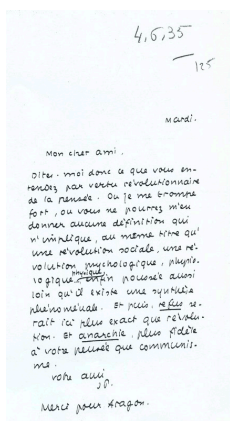 4,6,35
125
Mardi.
Mon cher ami.
Dites-moi donc ce que vous en-
tendez par vertu révolutionnaire
de la pensée. Ou je me trompe
fort, ou vous ne pourrez m'en
donner aucune définition qui
n'implique, au même titre qu'
une révolution sociale, une ré-
volution psychologique, physio-
logique, physique, enfin poussée aussi
loin qu'il existe une synthèse
phénoménale. Et puis, refus se-
rait ici plus exact que révolu-
tion. Et anarchie, plus fidèle
à votre pensée que communis-
me.
votre ami
Merci pour Aragon.